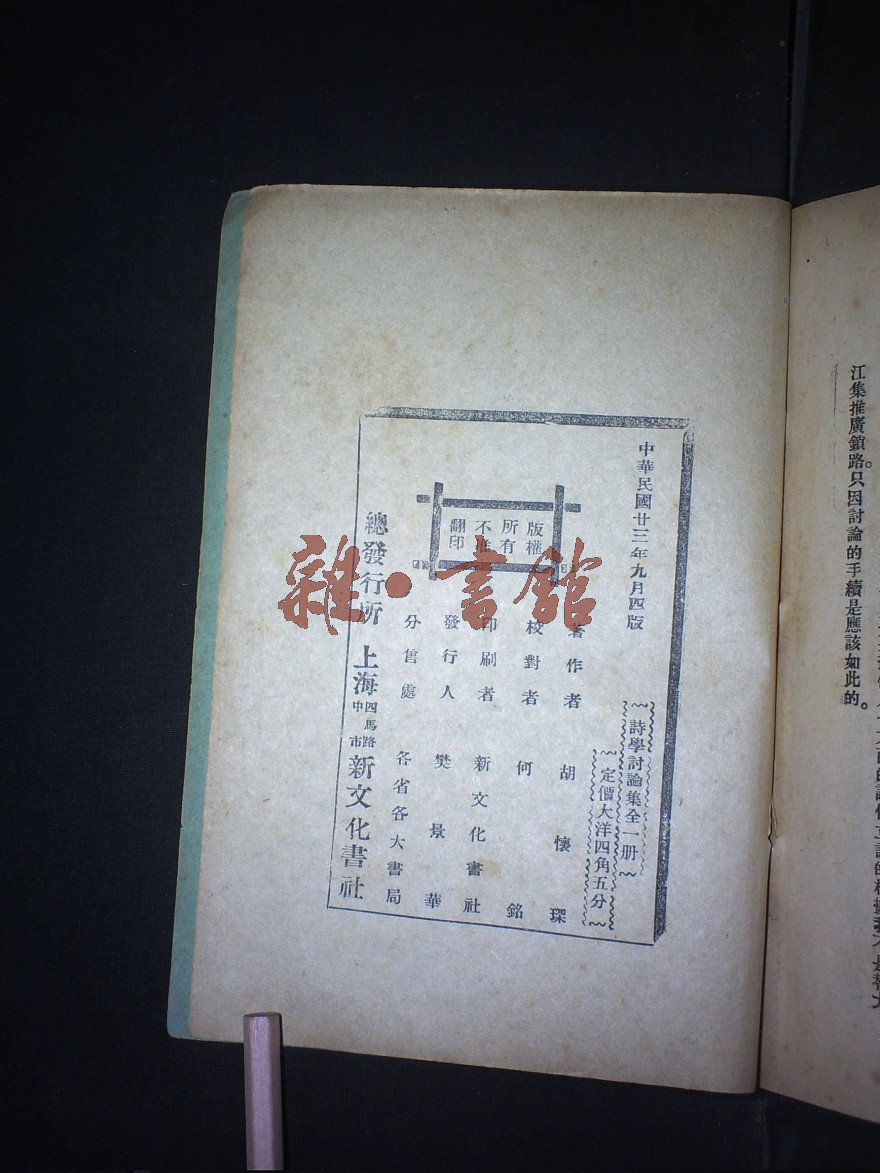 江集推廣鎖路。只因討論的手續是應該如此的。
中華民國廿三年九月四版
詩學討論集全一册
定價大洋四角五分
版權
所有
不准
翻印
著作者 胡懷琛
校對者 何銘
印刷者 新文化書社
發行人 樊景華
分售處 各省各大書局
總發行所 上海四馬路中市新文化書社
雜·書館